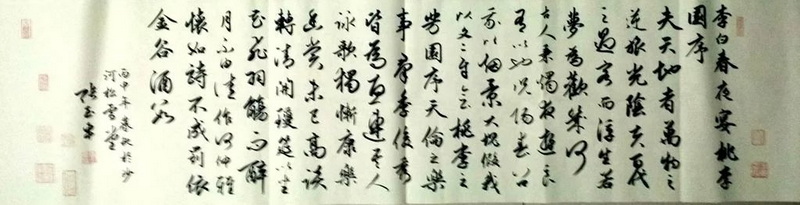 李白春夜宴桃李
園序
夫天地者萬物之
逆旅光陰者百代
之過客而浮生若
夢為歡幾何
古人秉燭夜遊良
有以也況陽春召
我以煙景大塊假我
以文章會桃李之
芳園序天倫之樂
事群季俊秀
皆為惠連吾人
詠歌獨慚康樂
幽賞未已高談
轉清開瓊筵以坐
花飛羽觴而醉
月不有佳作何伸雅
懷如詩不成罰依
金谷酒數
丙申年春於
河松雲堂
張玉